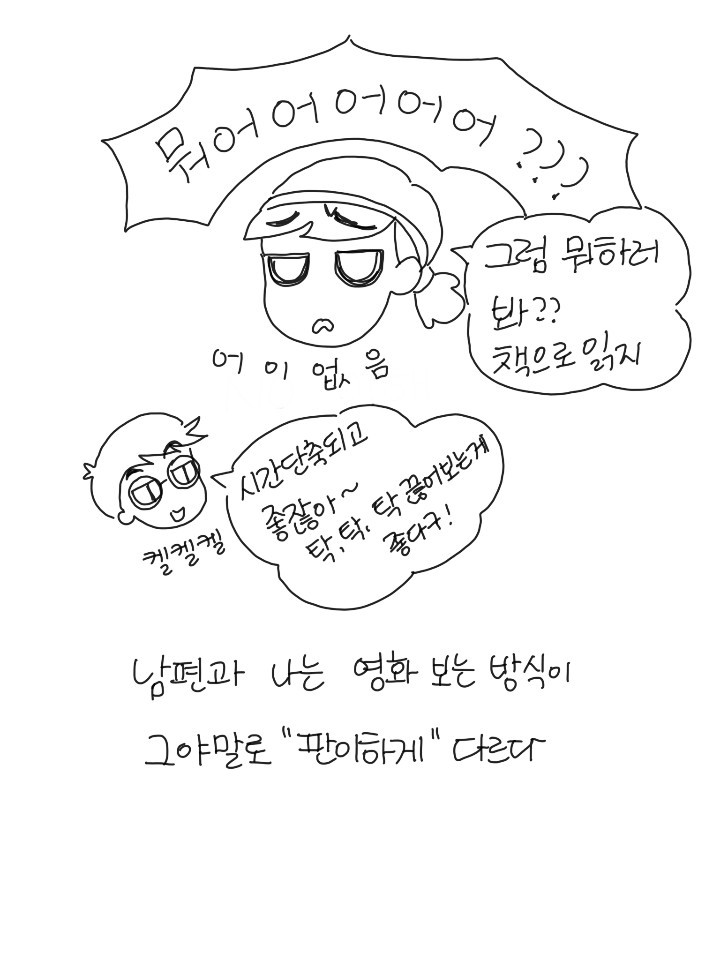 뭐어어어어어???
그럼 뭐하러
봐??
책으로 읽지
어이없음
시간단축되고
좋잖아~
탁, 탁, 탁 끊어보는게
좋다구!
켈켈켈
남편과 나는 영화 보는 방식이
그야말로 "판이하게" 다르다